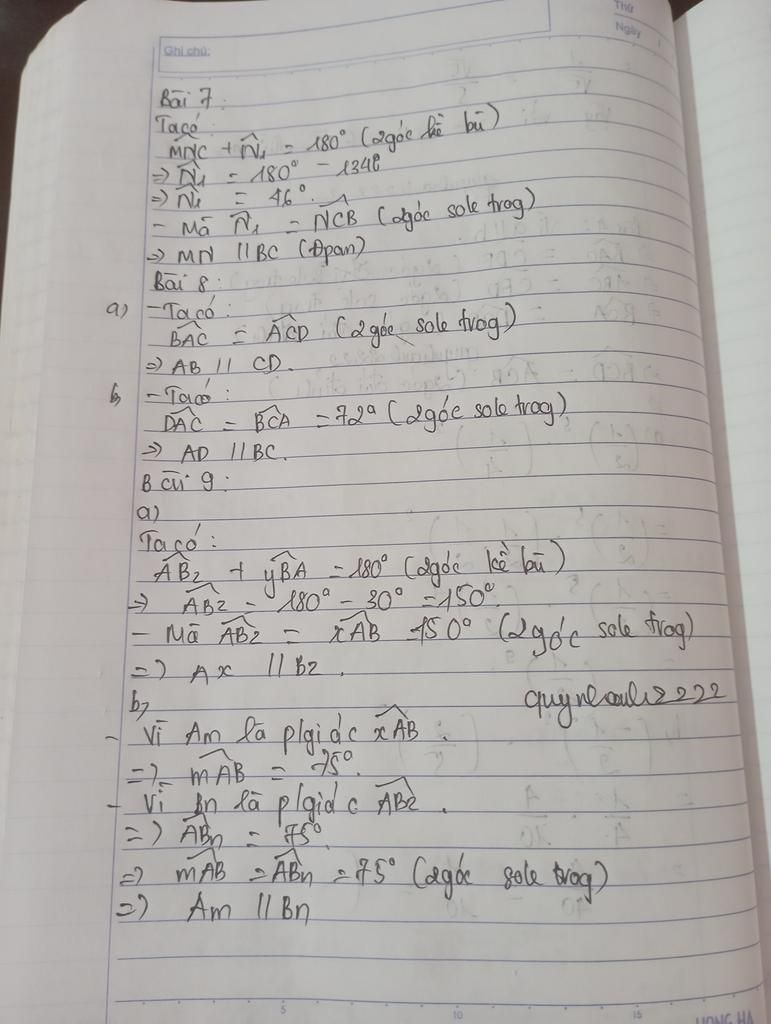 Thứ
Ngày
Ghi chú:
Bài 7:
Ta có:
MNC + N1 = 180° (2góc kề bù)
=> N1 = 180° - 134°
=> N1 = 46°.
- Mà N1 = NCB (2góc sole trog)
=> MN // BC (Đpan)
Bài 8:
a) - Ta có:
BAC = ACD (2góc sole trog)
=> AB // CD.
b, - Ta có:
DAC = BCA = 72° (2góc sole trog)
=> AD // BC.
Bài 9:
a)
Ta có:
ABz + yBA = 180° (2góc kề bù)
=> ABz = 180° - 30° = 150°.
- Mà ABz = xAB = 150° (2góc sole trog)
=> Ax // Bz.
b,
- Vì Am là p/giác xAB.
=> mAB = 75°.
- Vì Bn là p/giác ABz.
=> ABn = 75°.
=> mAB = ABn = 75° (2góc sole trog)
=> Am // Bn
5 10 15
HONG HA